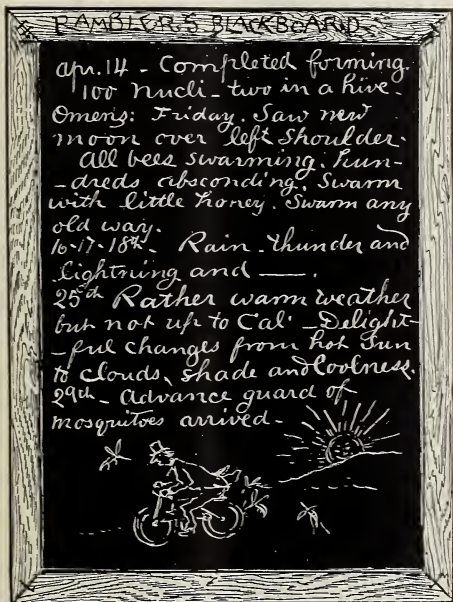 RAMBLER'S BLACKBOARD
Apr. 14 - Completed forming
100 nucli - two in a hive -
Omens: Friday. Saw new
moon over left shoulder -
All bees swarming. hun-
-dreds absconding. Swarm
with little honey. Swarm any
old way.
16-17-18th - Rain - thunder and
lightning and —.
25th Rather warm weather
but not up to Cal' - Delight-
-ful changes from hot sun
to clouds, shade and coolness.
29th - Advance guard of
mosquitoes arrived -